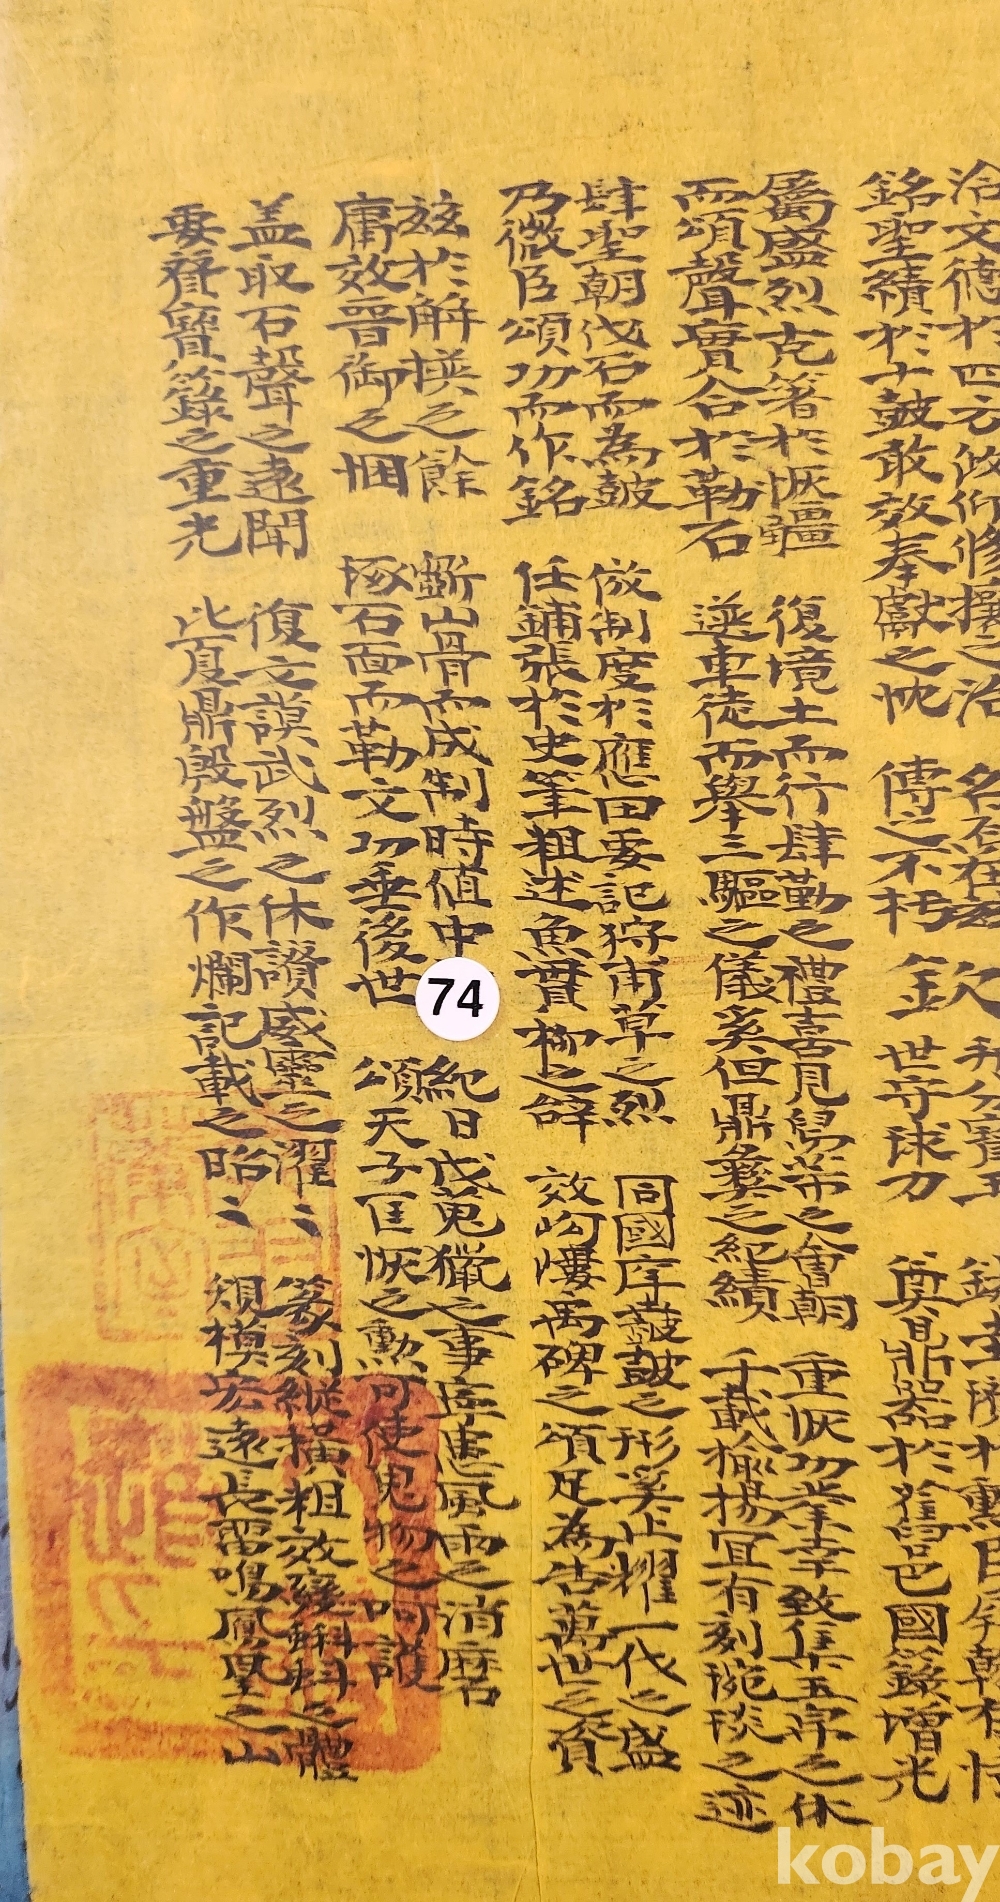 洽文德於四方攸仰修攘之治
銘聖績於十鼓敢效奉獻之忱 傳之不朽 金 世守球刀 奠鼎器於舊邑國籙增光
屬盛烈克著於恢疆 復境土而行肆勤之禮喜見舄芾之會朝 重恢功業幸致集玉帛之休
而頌聲實合於勒石 選車徒而擧三驅之儀奚但鼎彝之紀績 千載揄揚宜有刻琬琰之迹
肆聖朝伐石而為鼓 倣制度於應田要記狩甫草之烈 同國序鼖鼓之形奚止耀一代之盛
乃微臣頌功而作銘 任鋪張於史筆粗述魚貫柳之辭 效岣嶁禹碑之頌足為告萬世之資
玆於解揆之餘 斲山骨而成制時値中 紀日戊蒐獵之事應患風雨之消磨
庸效晉御之悃 琢石面而勒文功垂後世 頌天子匡恢之勲可使鬼物之呵護
盖取石聲之遠聞 復文謨武烈之休讚威靈之濯〻 篆刻縱橫粗效蝌蚪之體
要膺寶籙之重光 比夏鼎殷盤之作爛記載之昭〻 䫉模宏遠長留鳴鳳凰之山
74
kobay